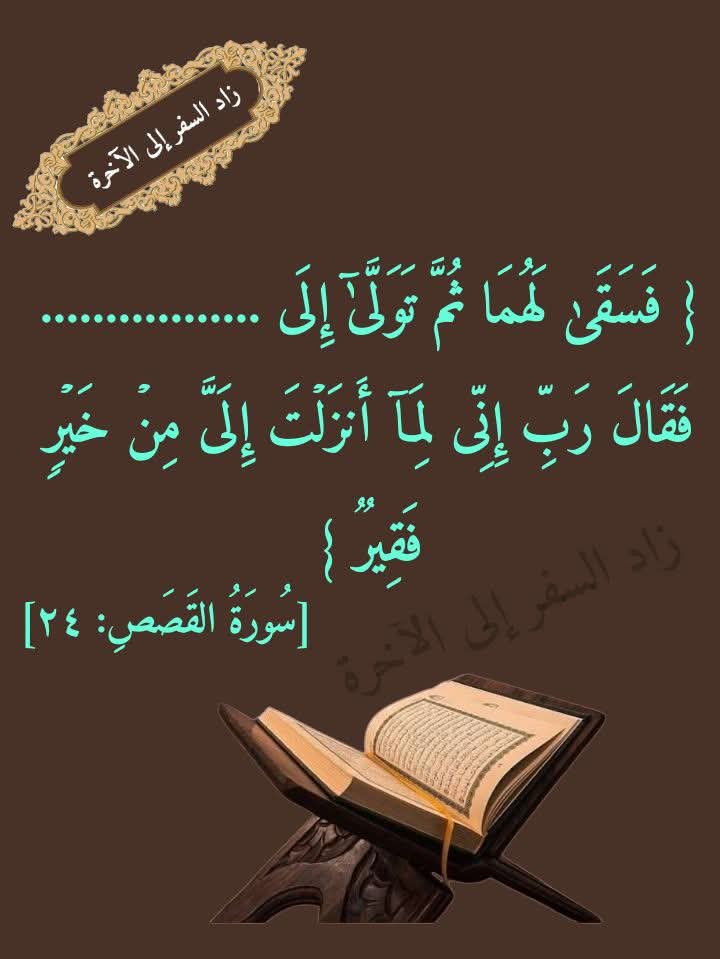 زاد السفر إلى الآخرة
{ فَسَقَىٰ لَهُمَا ثُمَّ تَوَلَّىٰٓ إِلَى .................
فَقَالَ رَبِّ إِنِّى لِمَآ أَنزَلْتَ إِلَىَّ مِنْ خَيْرٍ
فَقِيرٌ }
زاد السفر إلى الآخرة
[سُورَةُ القَصَصِ: ٢٤]